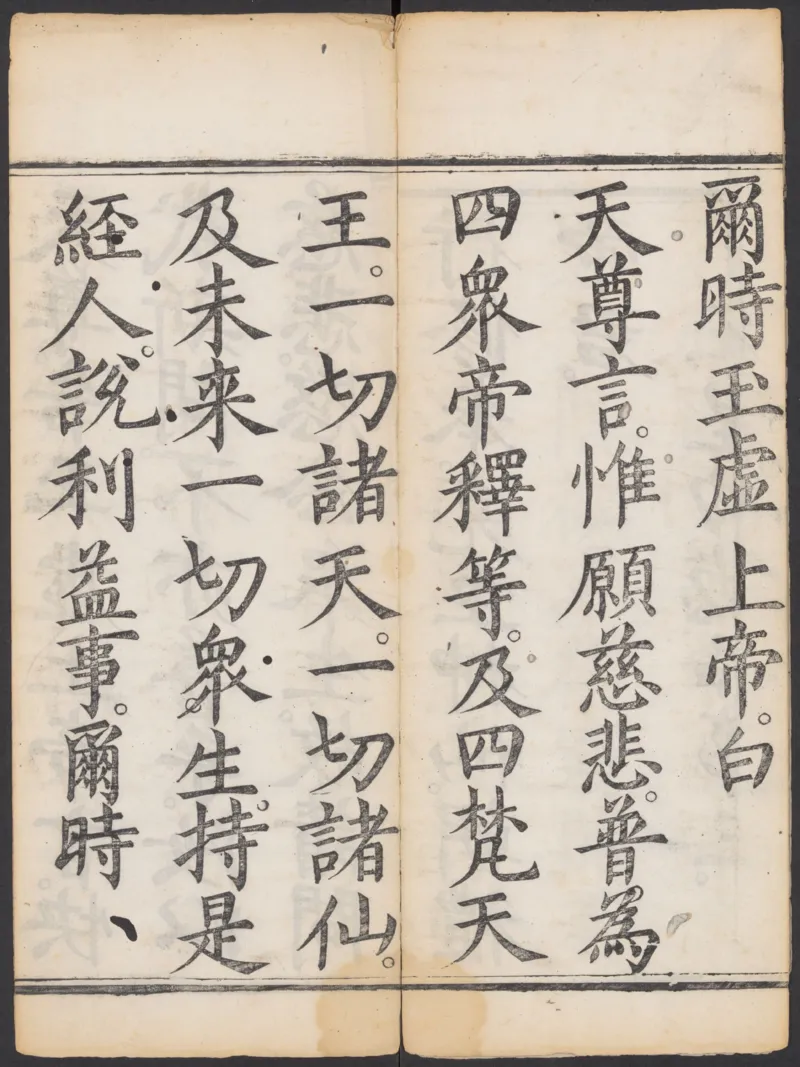 爾時玉虛上帝。白
天尊言。惟願慈悲。普為
四衆帝釋等。及四梵天
王。一切諸天。一切諸仙。
及未来一切衆生。持是
経人。說利益事。爾時